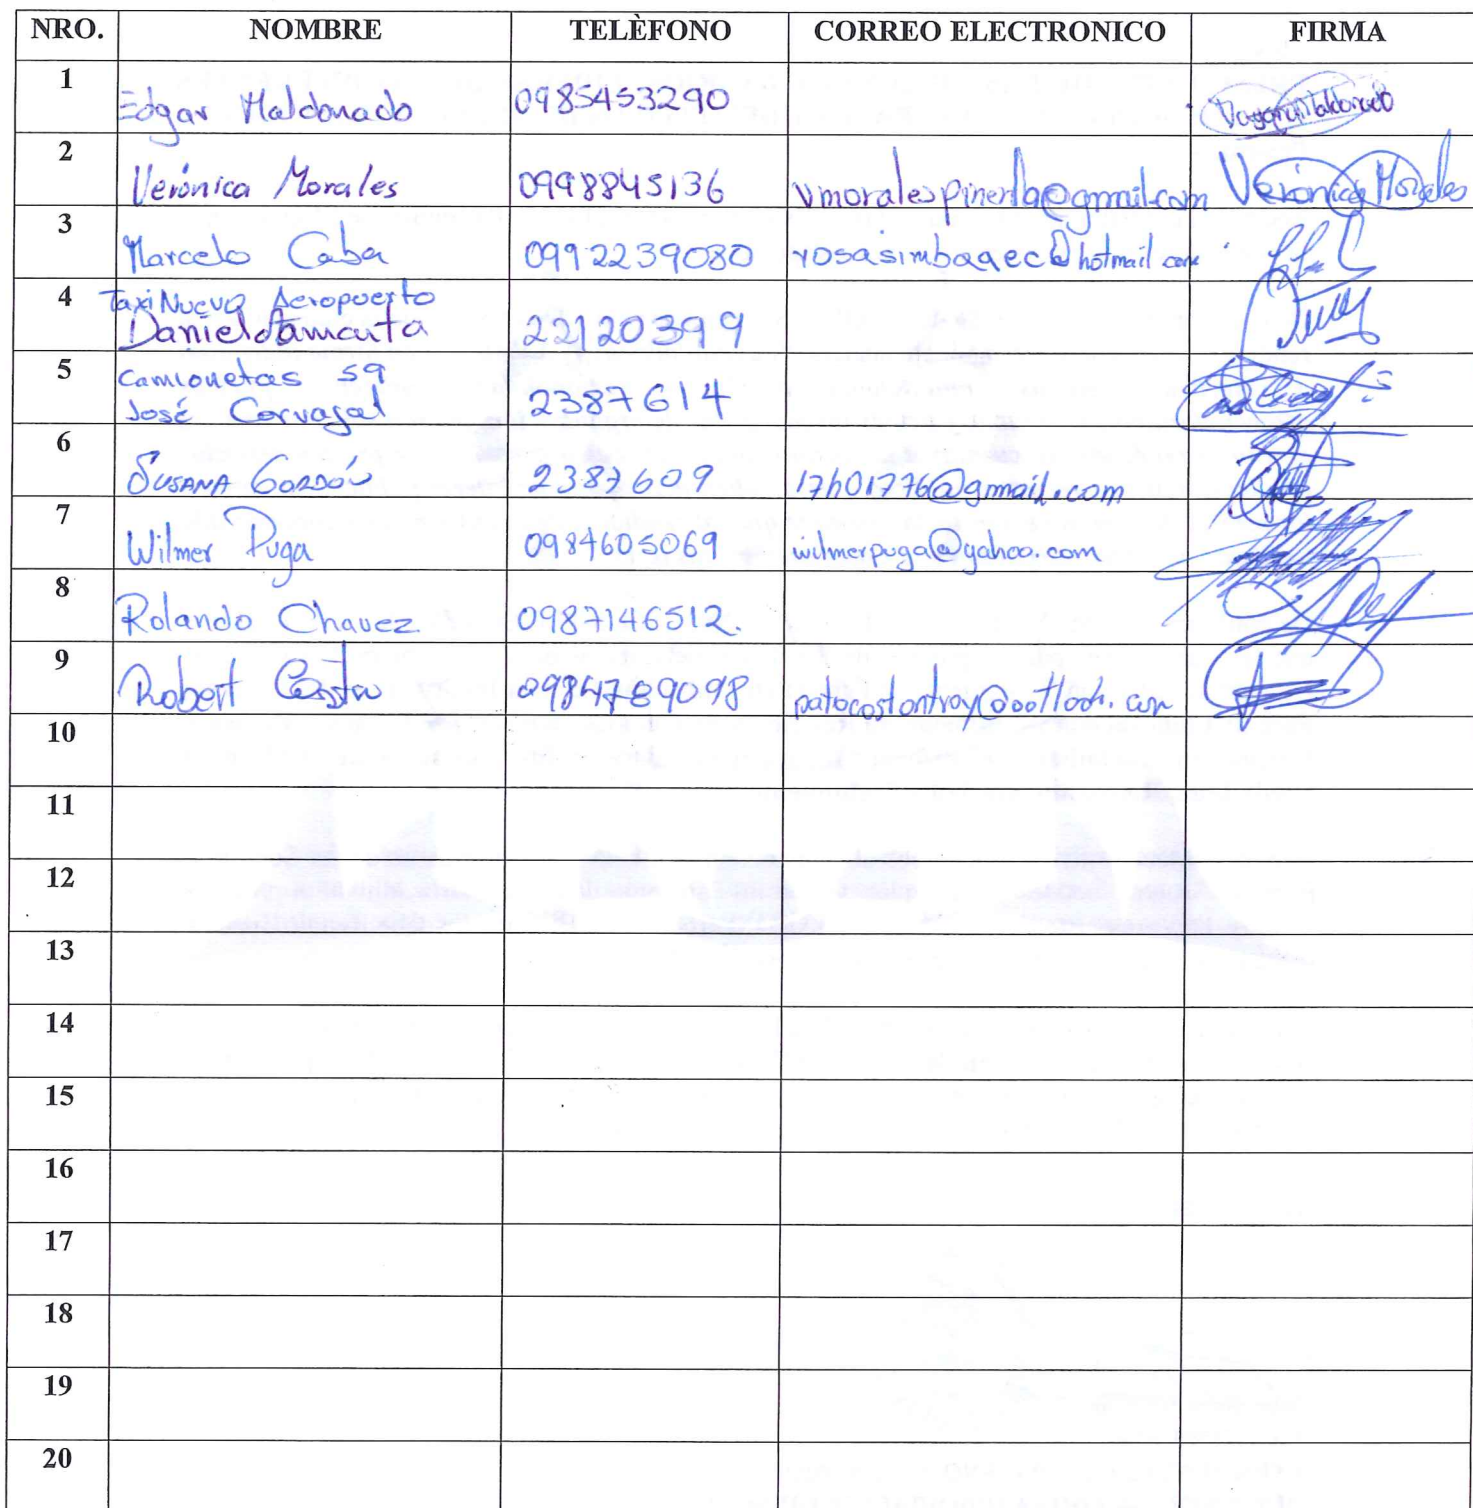 NRO. NOMBRE TELÈFONO CORREO ELECTRONICO FIRMA
1 Edgar Maldonado 0985453290 Maldonado
2 Verónica Morales 0998845136 Verónica Morales
3 Marcelo Caba 0992239080 rosasimbaqec@hotmail.com
4 Taxi Nuevo Aeropuerto
Daniel 22120399
5 Camionetas 59
José Carvajal 2387614
6 SUSANA GORDÓN 2387609 17h01776@gmail.com
7 Wilmer Puga 0984605069 wilmerpuga@yahoo.com
8 Rolando Chavez 0987146512.
9 Robert 0984789098
10
11
12
13
14
15
16
17
18
19
20